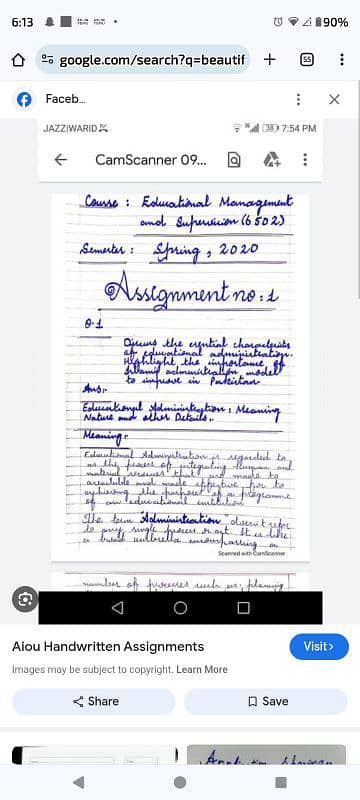 6:13
55
90%
google.com/search?q=beautif
Faceb...
JAZZ|WARID
7:54 PM
CamScanner 09...
Course : Educational Management
and Supervision (6502)
Semester : Spring, 2020
Assignment no : 1
Q.1
Discuss the essential characteristics
of educational administration.
Highlight the importance of
Islamic administration model
to improve in Pakistan
Ans:-
Educational Administration : Meaning
Nature and other Details:-
Meaning:-
Educational Administration is regarded to
as the process of integrating human and
material resources that are made to
available and made effective for to
achieving the purposes of a programme
of an educational institution
The term "Administration" doesn't refer
to any single process or act. It is like
a broad umbrella encompassing a
Scanned with CamScanner
number of processes such as: planning
Aiou Handwritten Assignments
Visit >
Images may be subject to copyright. Learn More
Share
Save